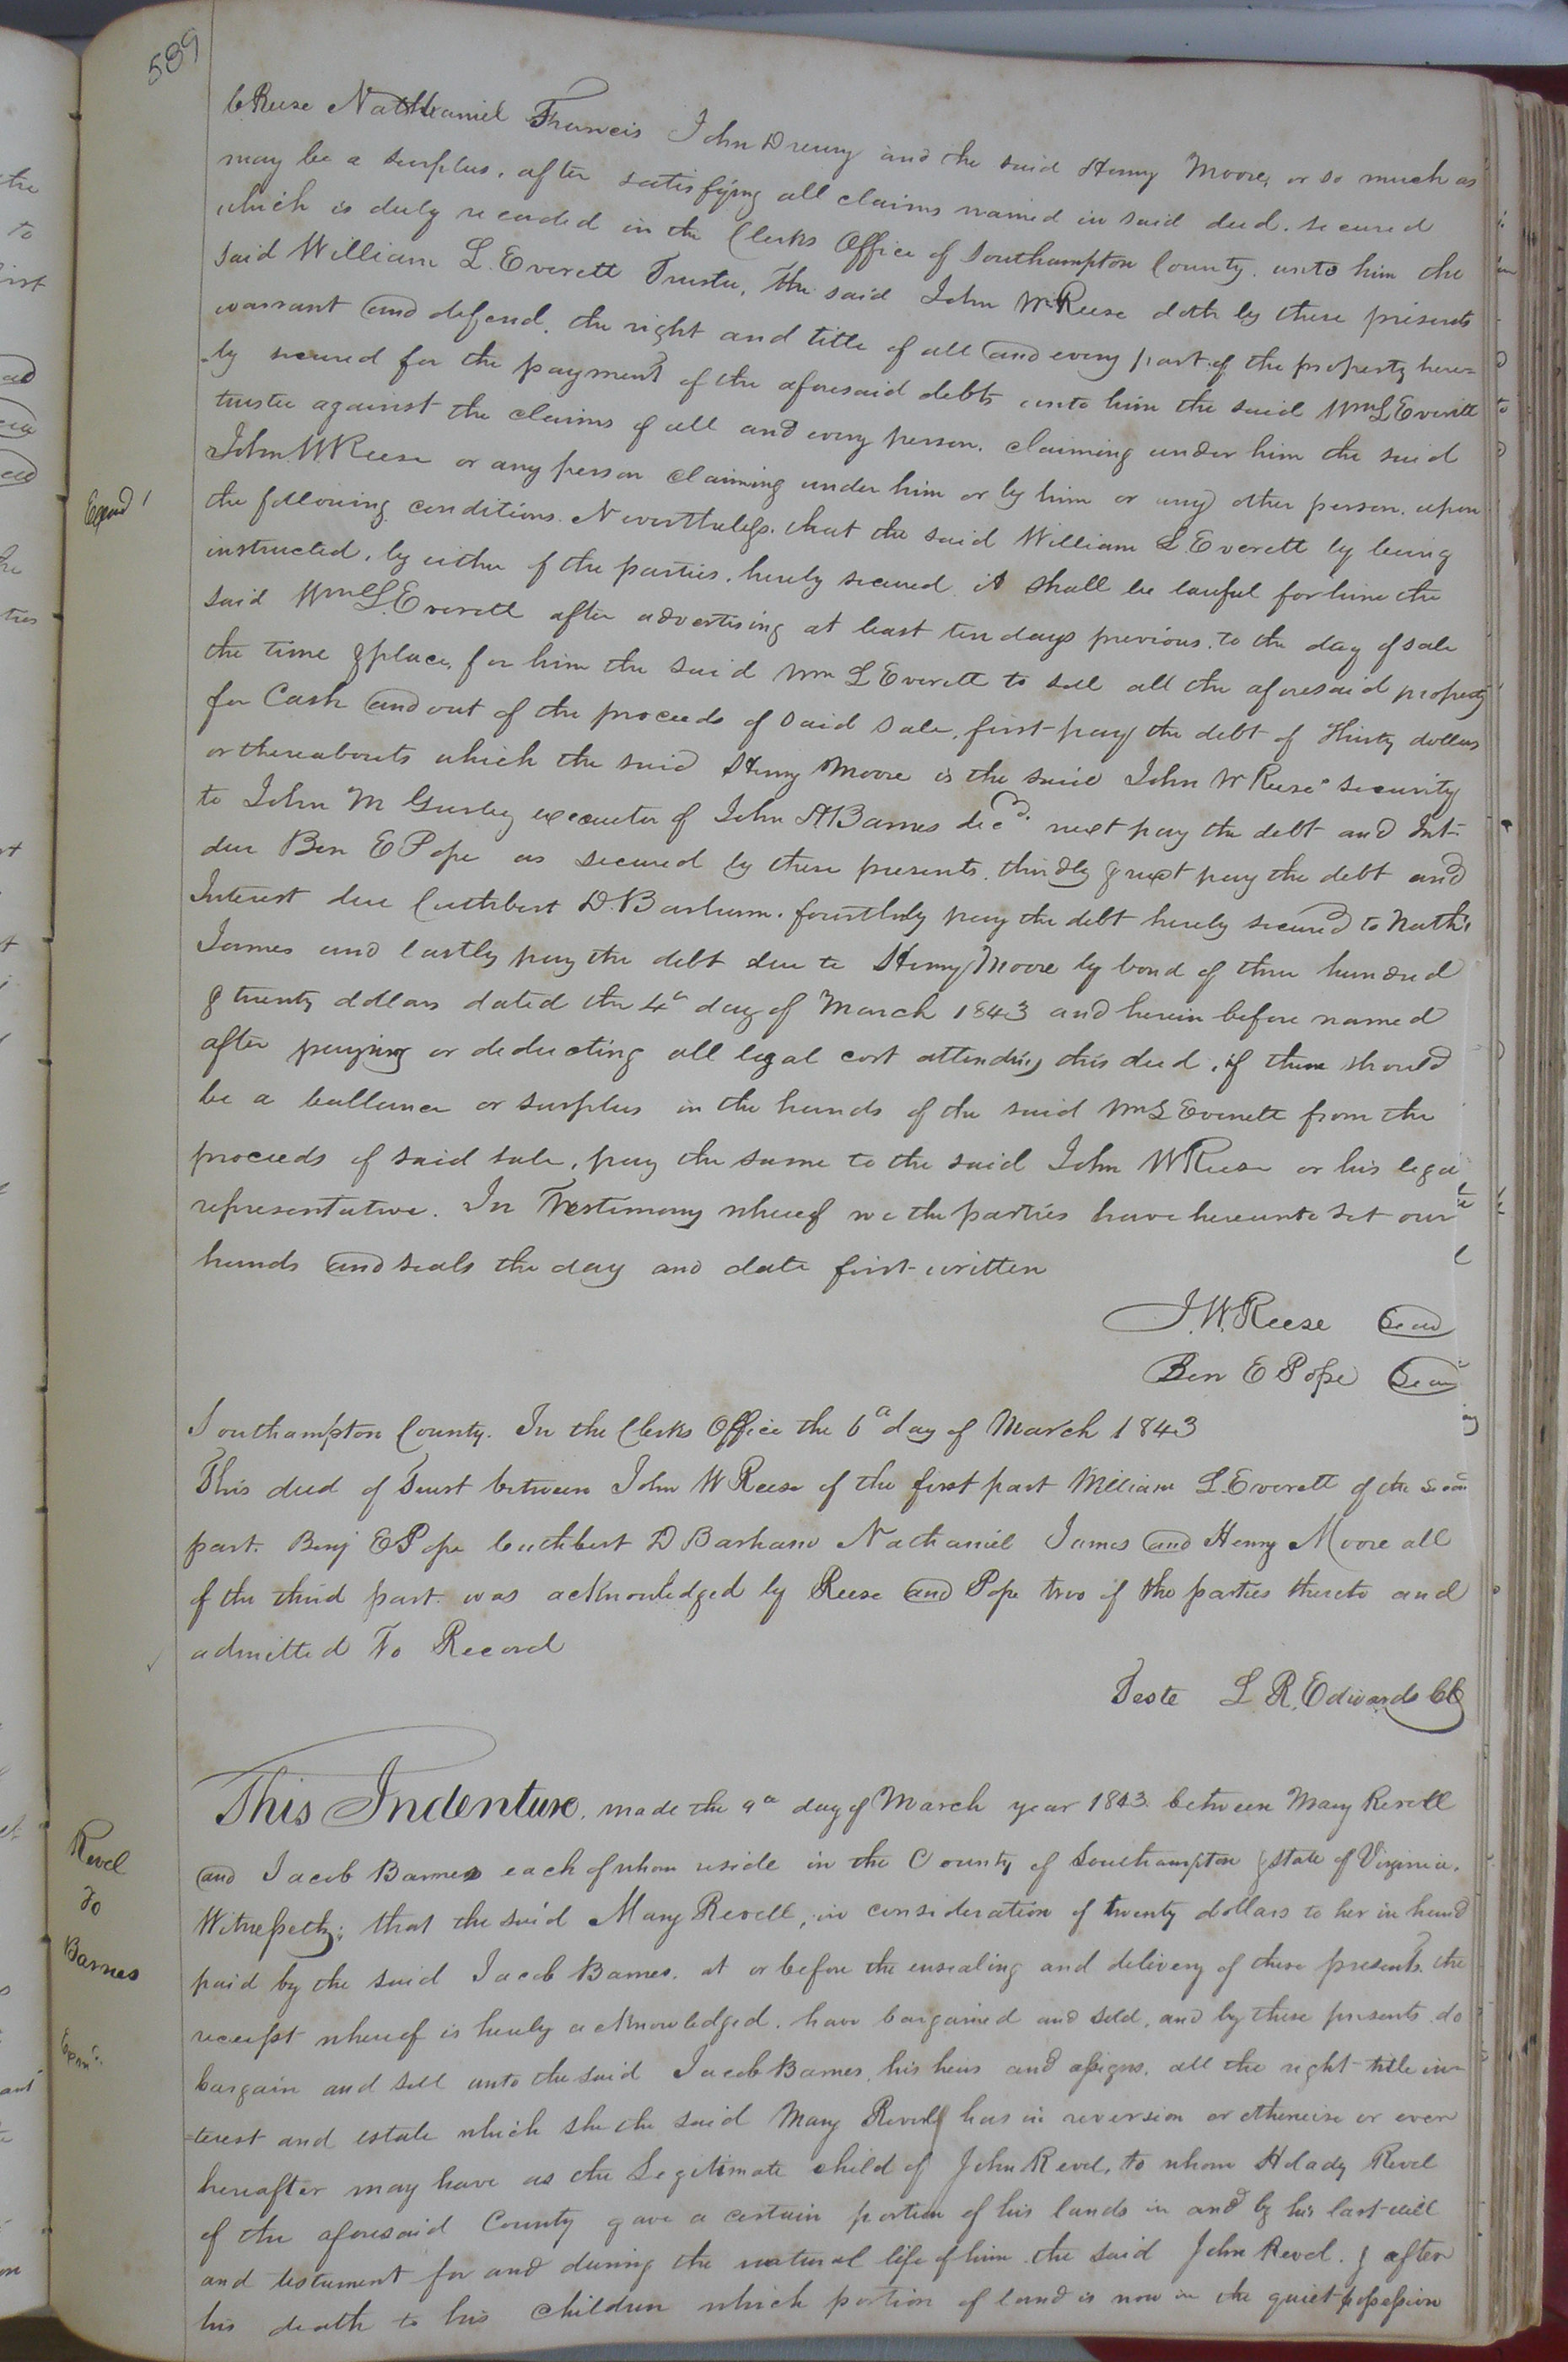 589
C Reese Nathaniel Francis John Drewry and the said Henry Moore, or so much as
may be a surplus, after satisfying all claims named in said deed. secured
which is duly recorded in the Clerks Office of Southampton County. unto him the
said William L. Everett Trustee, the said John W Reese doth by these presents
warrant and defend. the right and title of all and every part of the property here=
-by secured for the payment of the aforesaid debts unto him the said Wm L Everett
trustee against the claims of all and every person. claiming under him the said
John W Reese or any person claiming under him or by him or any other person. upon
the following conditions. Nevertheless. that the said William L Everett by being
Exam d
instructed, by either of the parties. hereby secured it shall be lawful for him the
said Wm L. Everett after advertising at least ten days previous. to the day of sale
the time & place, for him the said Wm L Everett to sell all the aforesaid property
for Cash and out of the proceeds of said sale. first pay the debt of thirty dollars
or thereabouts which the said Henry Moore is the said John W Reese' security
to John M Gurley executor of John A Barnes decd. next pay the debt and Int.
due Ben E Pope as secured by these presents. thirdly & next pay the debt and
Interest due Cuthbert D. Barham. fourthly pay the debt hereby secured to Nathl
James and lastly pay the debt due to Henry Moore by bond of three hundred
& twenty dollars dated the 4th day of March 1843 and herein before named
after paying or deducting all legal cost attending this deed, if there should
be a ballance or surplus in the hands of the said Wm L Everett from the
proceeds of said sale, pay the same to the said John W Reese or his legal
representative. In Testimony whereof we the parties have hereunto set our
hands and seals the day and date first written
J. W. Reese Seal
Ben E Pope Seal
Southampton County. In the Clerks Office the 6th day of March 1843
This deed of Trust between John W Reese of the first part William L. Everett of the second
part. Benj E Pope Cuthbert D Barham Nathaniel James and Henry Moore all
of the third part. was acknowledged by Reese and Pope two of the parties thereto and
admitted To Record
Teste L R. Edwards CC
This Indenture, made the 9th day of March year 1843 between Mary Revell
Revel
To
Barnes
and Jacob Barnes each of whom reside in the County of Southampton & state of Virginia.
Witnesseth; that the said Mary Revell, in consideration of twenty dollars to her in hand
paid by the said Jacob Barnes. at or before the ensealing and delivery of these presents. the
receipt whereof is hereby acknowledged. have bargained and sold, and by these presents do
Exam d.
bargain and sell unto the said Jacob Barnes, his heirs and assigns. all the right title in-
=terest and estate which she the said Mary Revell has in reversion or otherwise or ever
hereafter may have as the Legitimate child of John Revel, to whom Holady Revel
of the aforesaid County gave a certain portion of his lands in and by his last will
and testument for and during the natural life of him the said John Revel. & after
his death to his children which portion of land is now in the quiet possession